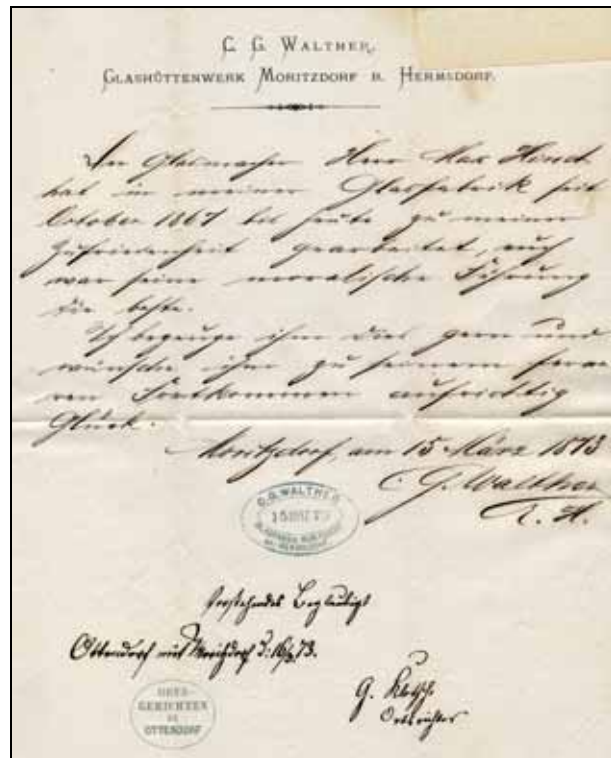 C. G. WALTHER,
GLASHÜTTENWERK MORITZDORF B. HERMSDORF.
Der Glasmacher Herr Max Hirsch
hat in meiner Glasfabrik seit
October 1867 bis heute zu meiner
Zufriedenheit gearbeitet, auch
war seine moralische Führung
die beste.
Ich bezeuge ihm dies gern und
wünsche ihm zu seinem ferne
ren Fortkommen aufrichtig
Glück.
Moritzdorf, am 15 März 1873
C. G. Walther
C. G. WALTHER
Vorstehendes Beglaubigt
Ottendorf mit Moritzdorf d: 16/3. 73.
G.
Ortsrichter
ORTS-
GERICHTEN
ZU
OTTENDORF